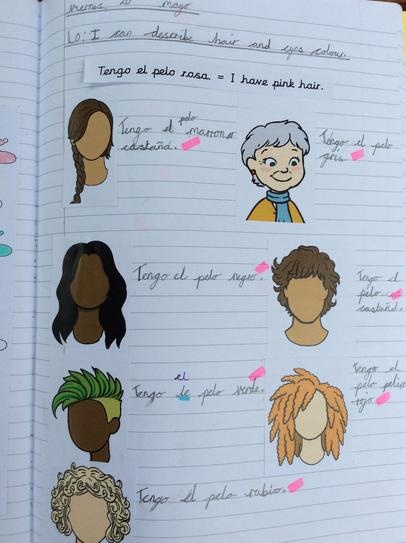 Viernes 20 mayo
Lo: I can describe hair and eyes colour.
Tengo el pelo rosa. = I have pink hair.
pelo
Tengo el marrona
castaño.
Tengo el pelo
gris
Tengo el pelo negro.
Tengo el
pelo
castaño.
el
Tengo le pelo verde.
Tengo el
pelo
rojo.
Tengo el pelo rubio.